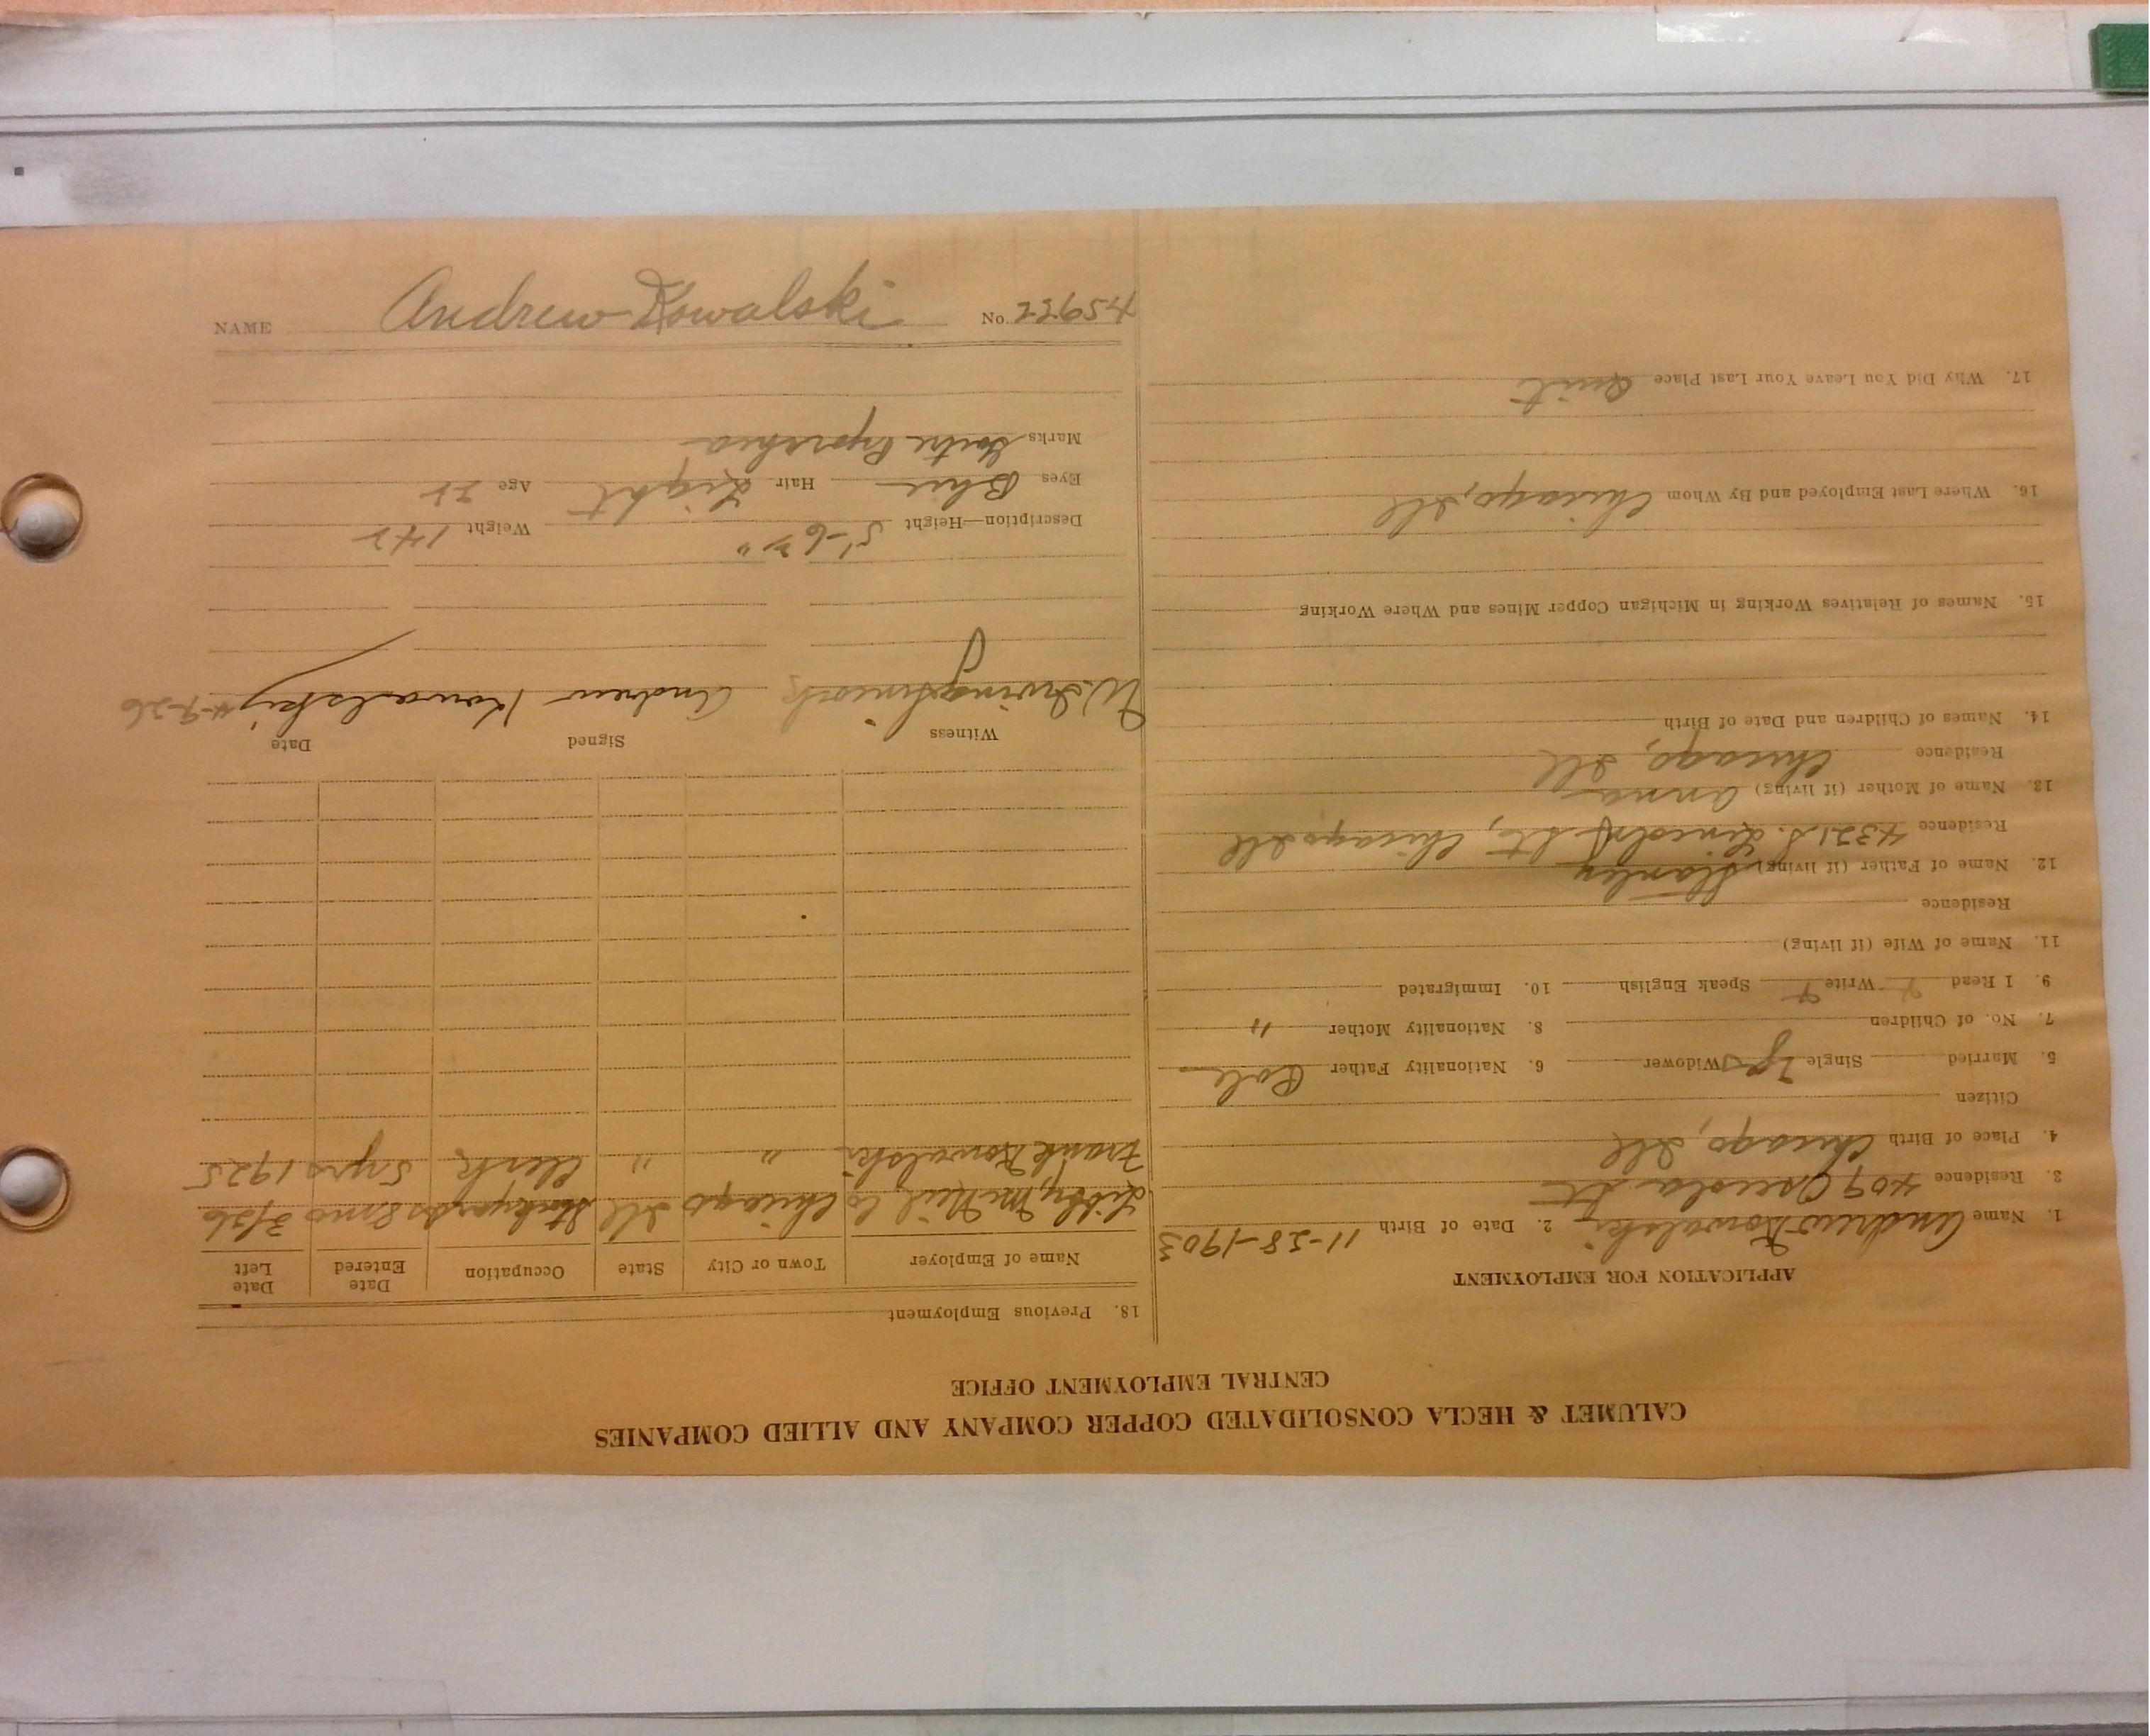 CALUMET & HECLA CONSOLIDATED COPPER COMPANY AND ALLIED COMPANIES
CENTRAL EMPLOYMENT OFFICE
APPLICATION FOR EMPLOYMENT
1. Name Andrew Kowalski 2. Date of Birth 11-28-1903
3. Residence 409 Osceola St
4. Place of Birth Chicago, Ill
Citizen
5. Married Single Yes Widower 6. Nationality Father Pole
7. No. of Children 8. Nationality Mother "
9. I Read Write Speak English 10. Immigrated
11. Name of Wife (if living)
Residence
12. Name of Father (if living) Stanley
Residence 4321 S. Lincoln St, Chicago Ill
13. Name of Mother (if living) Anna
Residence Chicago, Ill
14. Names of Children and Date of Birth
15. Names of Relatives Working in Michigan Copper Mines and Where Working
16. Where Last Employed and By Whom Chicago, Ill
17. Why Did You Leave Your Last Place Quit
18. Previous Employment
Name of Employer Town or City State Occupation Date Entered Date Left
Libby, McNeil Co Chicago Ill Stockyards 8 mo 3/26
Frank Kowalski " " Clerk 5 yrs 1925
Witness Signed Date
W. Irving Andrew Kowalski 4-9-26
Description—Height 5'-6½" Weight 142
Eyes Blue Hair Light Age 22
Marks Goitre
NAME Andrew Kowalski No.